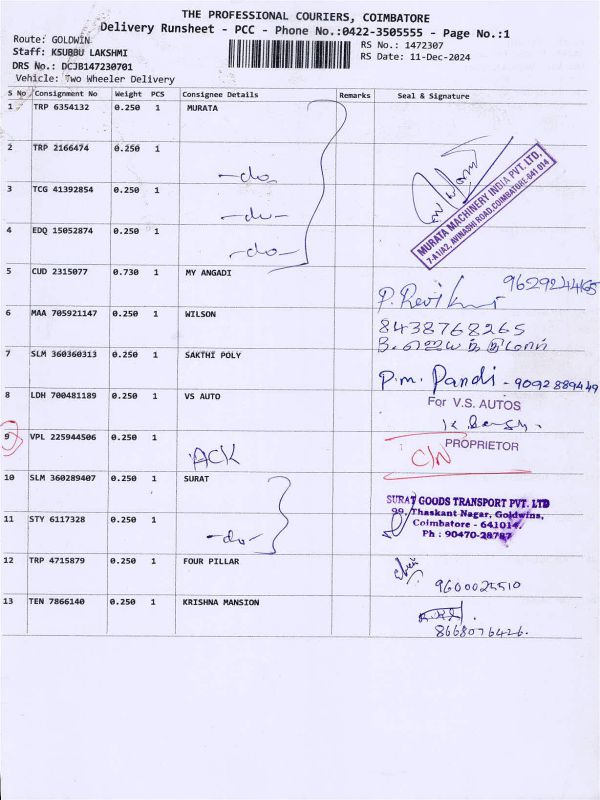 THE PROFESSIONAL COURIERS, COIMBATORE
Delivery Runsheet - PCC - Phone No.:0422-3505555 - Page No.:1
Route: GOLDWIN
RS No.: 1472307
Staff: KSUBBU LAKSHMI
RS Date: 11-Dec-2024
DRS No.: DCJB147230701
Vehicle: Two Wheeler Delivery
S No Consignment No Weight PCS Consignee Details Remarks Seal & Signature
1 TRP 6354132 0.250 1 MURATA
2 TRP 2166474 0.250 1
-do-
3 TCG 41392854 0.250 1
-do-
4 EDQ 15052874 0.250 1
-do-
MURATA MACHINERY INDIA PVT. LTD.,
7-A1/A2, AVINASHI ROAD, COIMBATORE-641 014
5 CUD 2315077 0.730 1 MY ANGADI
9629244165
P. Ravi Kumar
6 MAA 705921147 0.250 1 WILSON
8438768265
7 SLM 360360313 0.250 1 SAKTHI POLY
P.M. Pandi - 9092889449
8 LDH 700481189 0.250 1 VS AUTO
For V.S. AUTOS
9 VPL 225944506 0.250 1
PROPRIETOR
ACK
C/N
10 SLM 360289407 0.250 1 SURAT
SURAT GOODS TRANSPORT PVT. LTD
99, Thaskant Nagar, Goldwins,
11 STY 6117328 0.250 1
Coimbatore - 641014.
-do-
Ph : 90470-28787
12 TRP 4715879 0.250 1 FOUR PILLAR
9600025510
13 TEN 7866140 0.250 1 KRISHNA MANSION
8668076426.